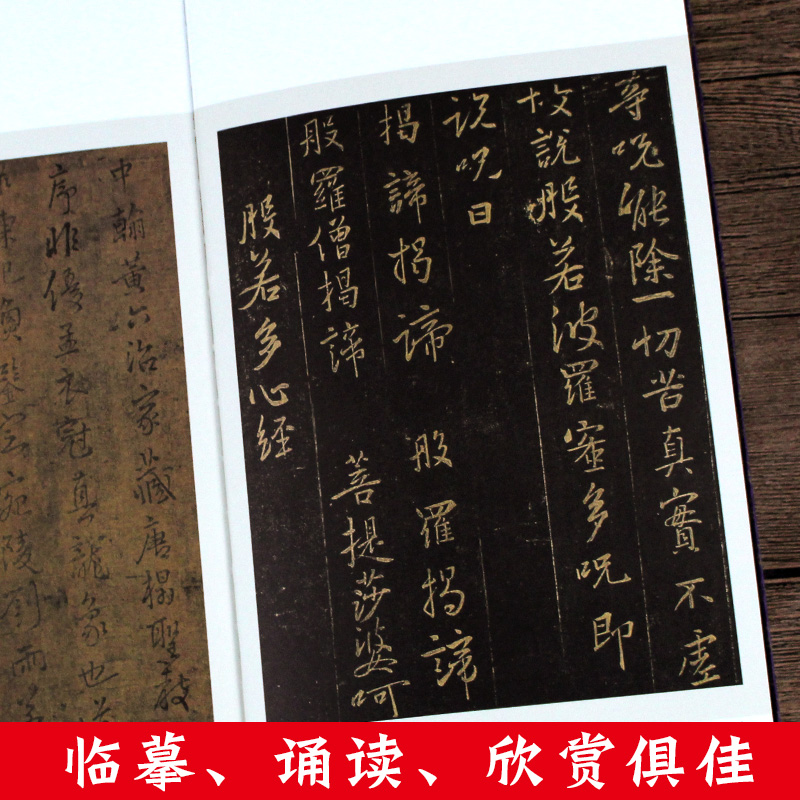 等呪能除一切苦真實不虛
故說般若波羅蜜多呪即
說呪曰
揭諦揭諦 般羅揭諦
般羅僧揭諦 菩提莎婆呵
般若多心經
中翰黃六治家藏唐搨聖教
序非優孟衣冠真龍象也
临摹、诵读、欣赏俱佳